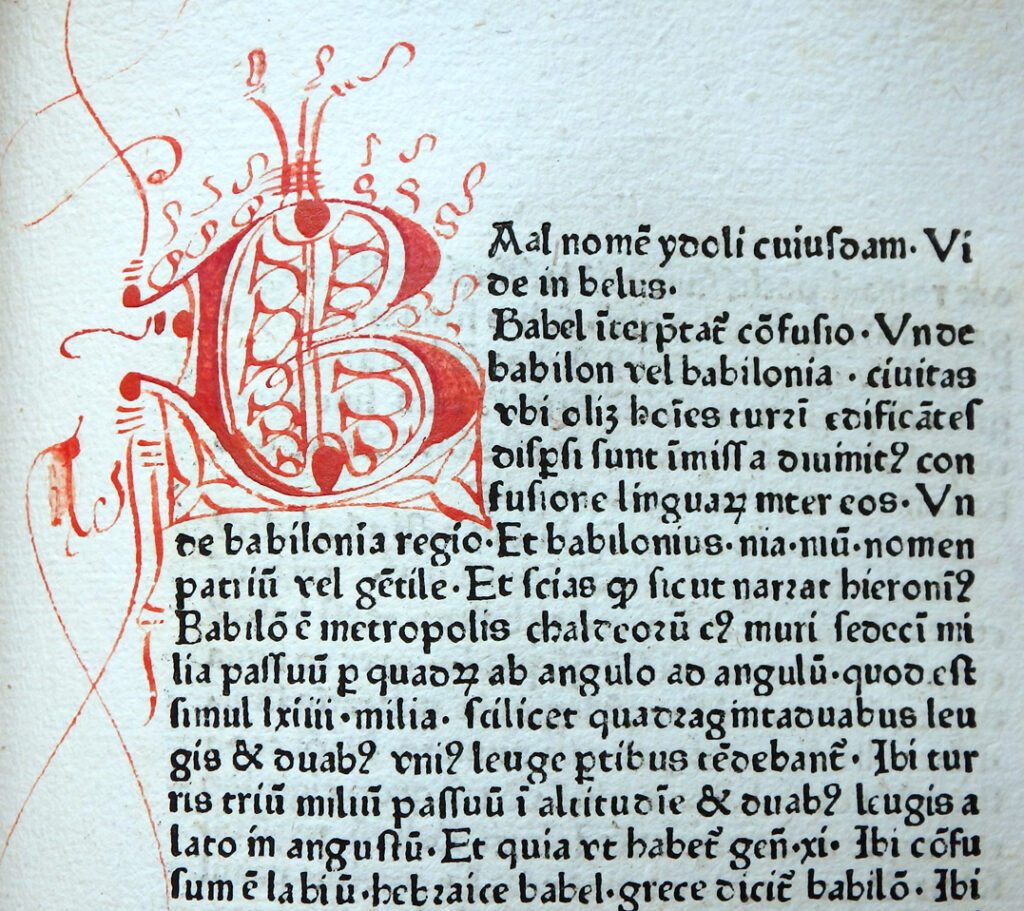 BAal nomē ydoli cuiuſdam. Vi
de in belus.
Babel īterp̄tat᷑ cōfuſio. Vnde
babilon vel babilonia . ciuitas
vbi oliꝫ hoīes turrī edificātes
diſꝑſi ſunt īmiſſa diuinitꝰ con
fuſione linguaꝝ inter eos. Vn
de babilonia regio. Et babilonius. nia. niū. nomen
patriū vel gētile. Et ſcias ꝙ ſicut narrat hieronīꝰ
Babilō ē metropolis chaldeorū cꝰ muri ſedecī mi
lia paſſuū ꝑ quadꝝ ab angulo ad angulū. quod eſt
ſimul lxiiii. milia. ſcilicet quadragintaduabus leu
gis & duabꝰ vniꝰ leuge ꝑtibus tēdebant᷑. Ibi tur
ris triū miliū paſſuū ī altitudīe & duabꝰ leugis a
lato in anguſtū. Et quia vt habet᷑ gen̄. xi. Ibi cōfu
ſum ē labiū. hebraice babel. grece dicit᷑ babilō. Ibi